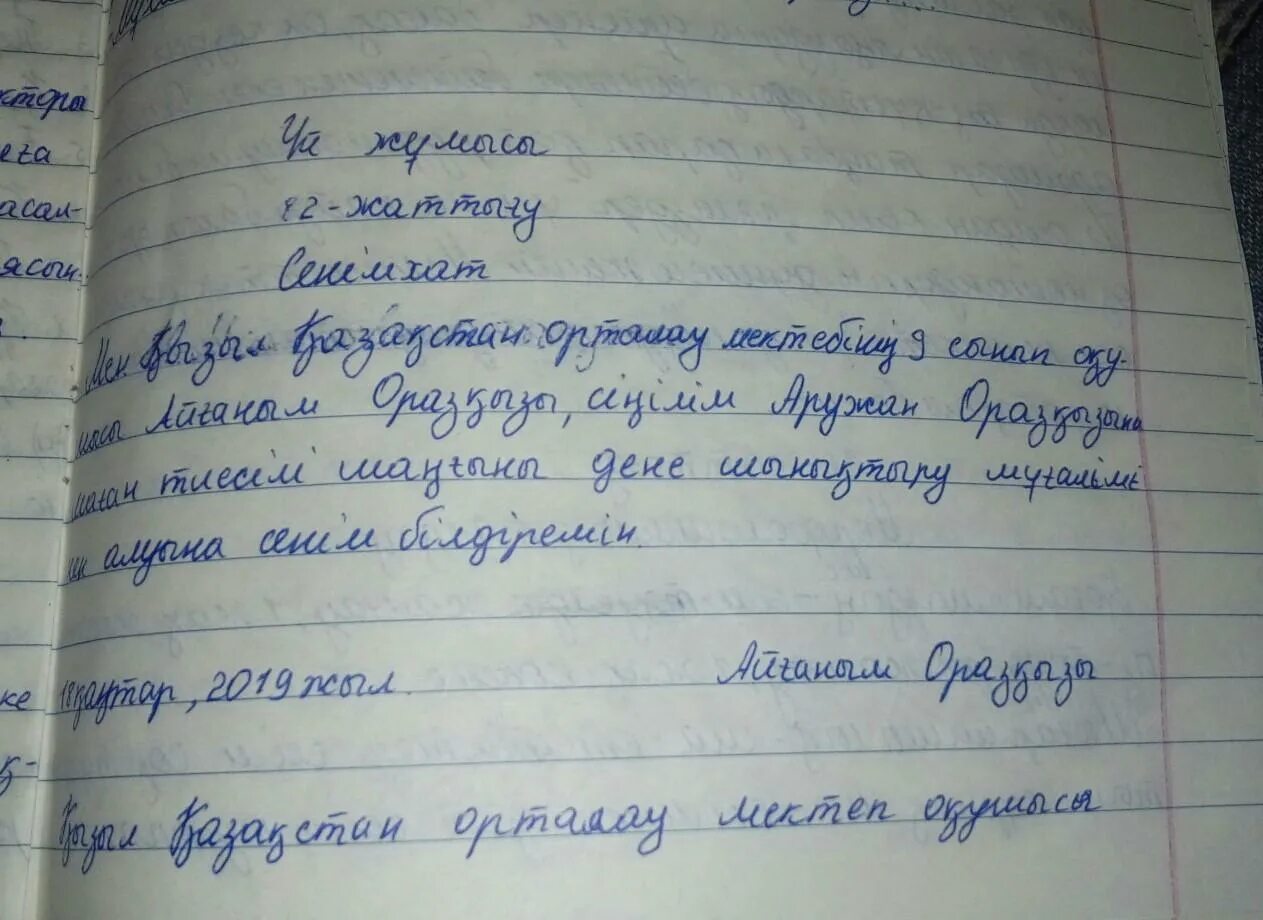 Үй жұмысы
кторы
еға
42-жаттығу
асал-
Сенімхат
ясын
Мен Қызыл Қазақстан орталау мектебінің 9 сынып оқу-
шысы Айғаным Оразқызы, сіңілім Аружан Оразқызына
маған тиесілі шаңғыны дене шынықтыру мұғалімі
нен алуына сенім білдіремін.
ке
18 қаңтар, 2019 жыл.
Айғаным Оразқызы
қ-
Қызыл Қазақстан орталау мектеп оқушысы